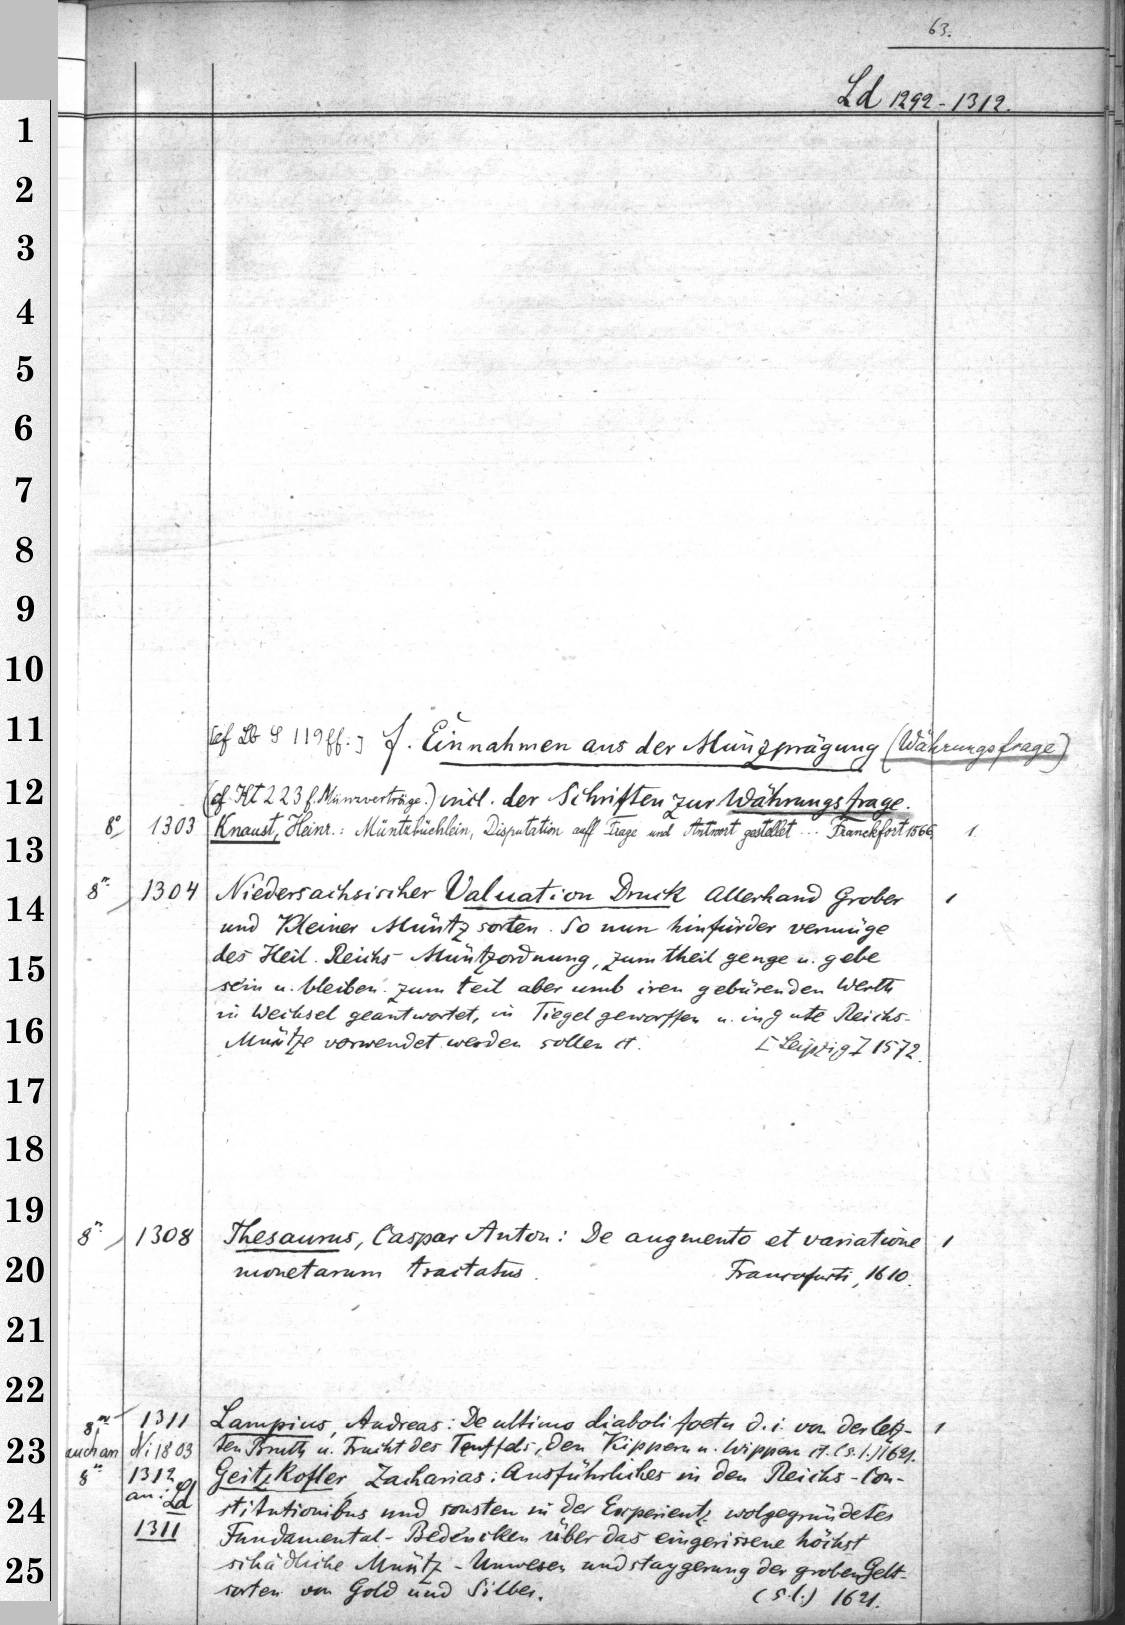 63.
Ld 1292-1312.
1
2
3
4
5
6
7
8
9
10
11
[cf Lb S 119ff.] f. Einnahmen aus der Münzprägung (Währungsfrage)
12
(cf. Ht 223 f. Münzverträge.) incl. der Schriften zur Währungsfrage.
8° 1303 Knaust, Heinr.: Müntzbüchlein, Disputation auff Frage und Antwort gestellet ... Franckfort 1566. 1
13
8° 1304 Niedersachsischer Valuation Druck Allerhand Grober 1
14
und Kleiner Müntz sorten. So nun hinfürder vermüge
des Heil. Reichs Müntzordnung, zum theil genge u. gebe
15
sein u. bleiben. zum teil aber umb iren gebürenden Werth
in Wechsel geantwortet, in Tiegel geworffen u. in gute Reichs-
16
Müntze vorwendet werden sollen et. [Leipzig] 1572.
17
18
19
8° 1308 Thesaurus, Caspar Anton: De augmento et variatione 1
20
monetarum tractatus. Francofurti, 1610.
21
22
8° 1311 Lampius, Andreas: De ultimo diaboli foetu d. i. von der letz- 1
23
auch an Ni 1803 ten Bruth u. Frucht des Teuffels, den Kippern u. Wippern et. (s. l.) 1621.
8° 1312 Geitzkofler, Zacharias: Ausführliches in den Reichs-Con-
an: Ld
24
stitutionibus und sonsten in der Experientz wolgegründetes
1311 Fundamental-Bedencken über das eingerissene höchst
25
schädliche Müntz-Unwesen und staygerung der groben Gelt-
sorten von Gold und Silber. (s. l.) 1621.